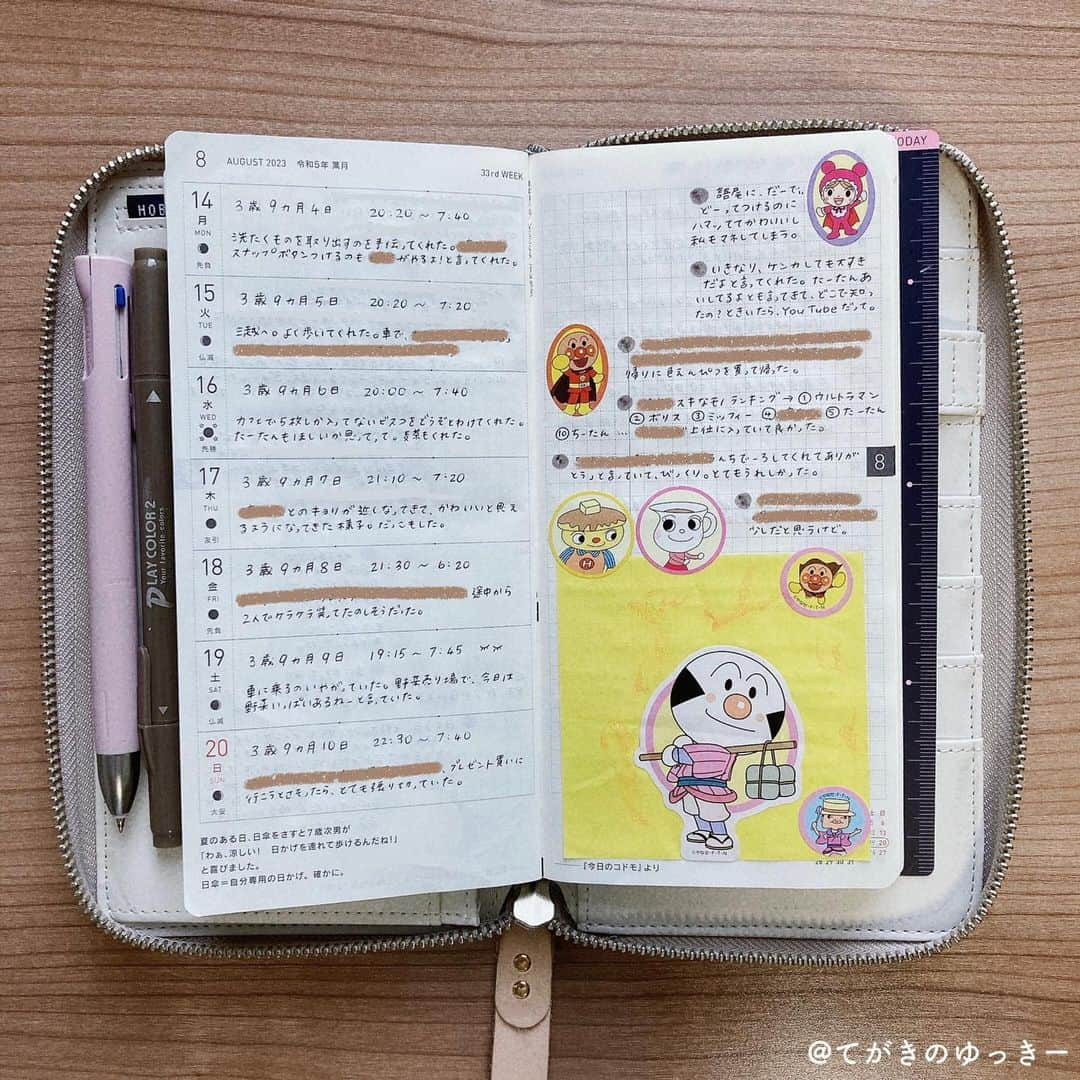 HOB
8 AUGUST 2023 令和5年 葉月
33rd WEEK
14
月
MON
先負
3歳9ヵ月4日 20:20〜7:40
洗たくものを取り出すのを手伝ってくれた。
スナップボタンつけるのも がやるよ!と言ってくれた。
15
火
TUE
仏滅
3歳9ヵ月5日 20:20〜7:20
三越へ。よく歩いてくれた。車で、
16
水
WED
先勝
3歳9ヵ月6日 20:00〜7:40
カフェで5枚しか入ってないビスコをどうぞとわけてくれた。
たーたんもほしいか思って、って。お茶もくれた。
17
木
THU
友引
3歳9ヵ月7日 21:10〜7:20
とのキョリが近しくなってきて、かわいいと思え
るようになってきた様子。だっこもした。
18
金
FRI
先負
3歳9ヵ月8日 21:30〜6:20
途中から
2人でケラケラ笑ってたのしそうだった。
19
土
SAT
仏滅
3歳9ヵ月9日 19:15〜7:45
車に乗るのいやがっていた。野菜売り場で、今日は
野菜いっぱいあるねーと言っていた。
20
日
SUN
大安
3歳9ヵ月10日 22:30〜7:40
プレゼント買いに
行こうとさそったら、とても張り切っていた。
夏のある日、日傘をさすと7歳次男が
「わぁ、涼しい! 日かげを連れて歩けるんだね!」
と喜びました。
日傘=自分専用の日かげ。確かに。
PLAY COLOR 2
Your favorite colors
TODAY
語尾に、だーでぃ
どーってつけるのに
ハマッててかわいいし
私もマネしてしまう。
いきなり、ケンカしても大すき
だよと言ってくれた。たーたんあ
いしてるよとも言ってきて、どこで知っ
たの?ときいたら、YouTubeだって。
帰りに色えんぴつを買って帰った。
スキなモノランキング→①ウルトラマン
②ポリス ③ミッフィー ④ ⑤たーたん
⑩ちーたん… 上位に入っていて良かった。
んちでーろしてくれてありが
とう」と言っていて、びっくり。とてもうれしかった。
なしだと思うけど。
8
H
『今日のコドモ』より
@てがきのゆっきー